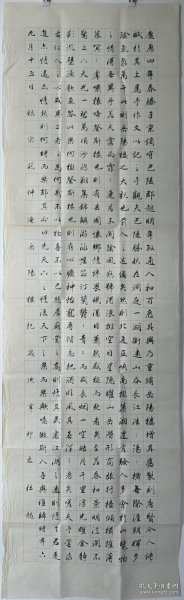 慶曆四年春滕子京謫守巴陵郡越明年政通人和百廢具興乃重修岳陽樓增其舊制刻唐賢今人詩
賦於其上屬予作文以記之予觀夫巴陵勝狀在洞庭一湖銜遠山吞長江浩浩湯湯橫無際涯朝暉夕
陰氣象萬千此則岳陽樓之大觀也前人之述備矣然則北通巫峽南極瀟湘遷客騷人多會於此覽物
之情得無異乎若夫霪雨霏霏連月不開陰風怒號濁浪排空日星隱耀山岳潛形商旅不行檣傾楫摧薄
暮冥冥虎嘯猿啼登斯樓也則有去國懷鄉憂讒畏譏滿目蕭然感極而悲者矣至若春和景明波瀾不
驚上下天光一碧萬頃沙鷗翔集錦鱗游泳岸芷汀蘭郁郁青青而或長煙一空皓月千里浮光躍金
靜影沉璧漁歌互答此樂何極登斯樓也則有心曠神怡寵辱偕忘把酒臨風其喜洋洋者矣嗟夫予嘗求
古仁人之心或異二者之為何哉不以物喜不以己悲居廟堂之高則憂其民處江湖之遠則憂其君是
進亦憂退亦憂然則何時而樂耶其必曰先天下之憂而憂後天下之樂而樂歟噫微斯人吾誰與歸時六年
九月十五日 錄宋范仲淹岳陽樓記